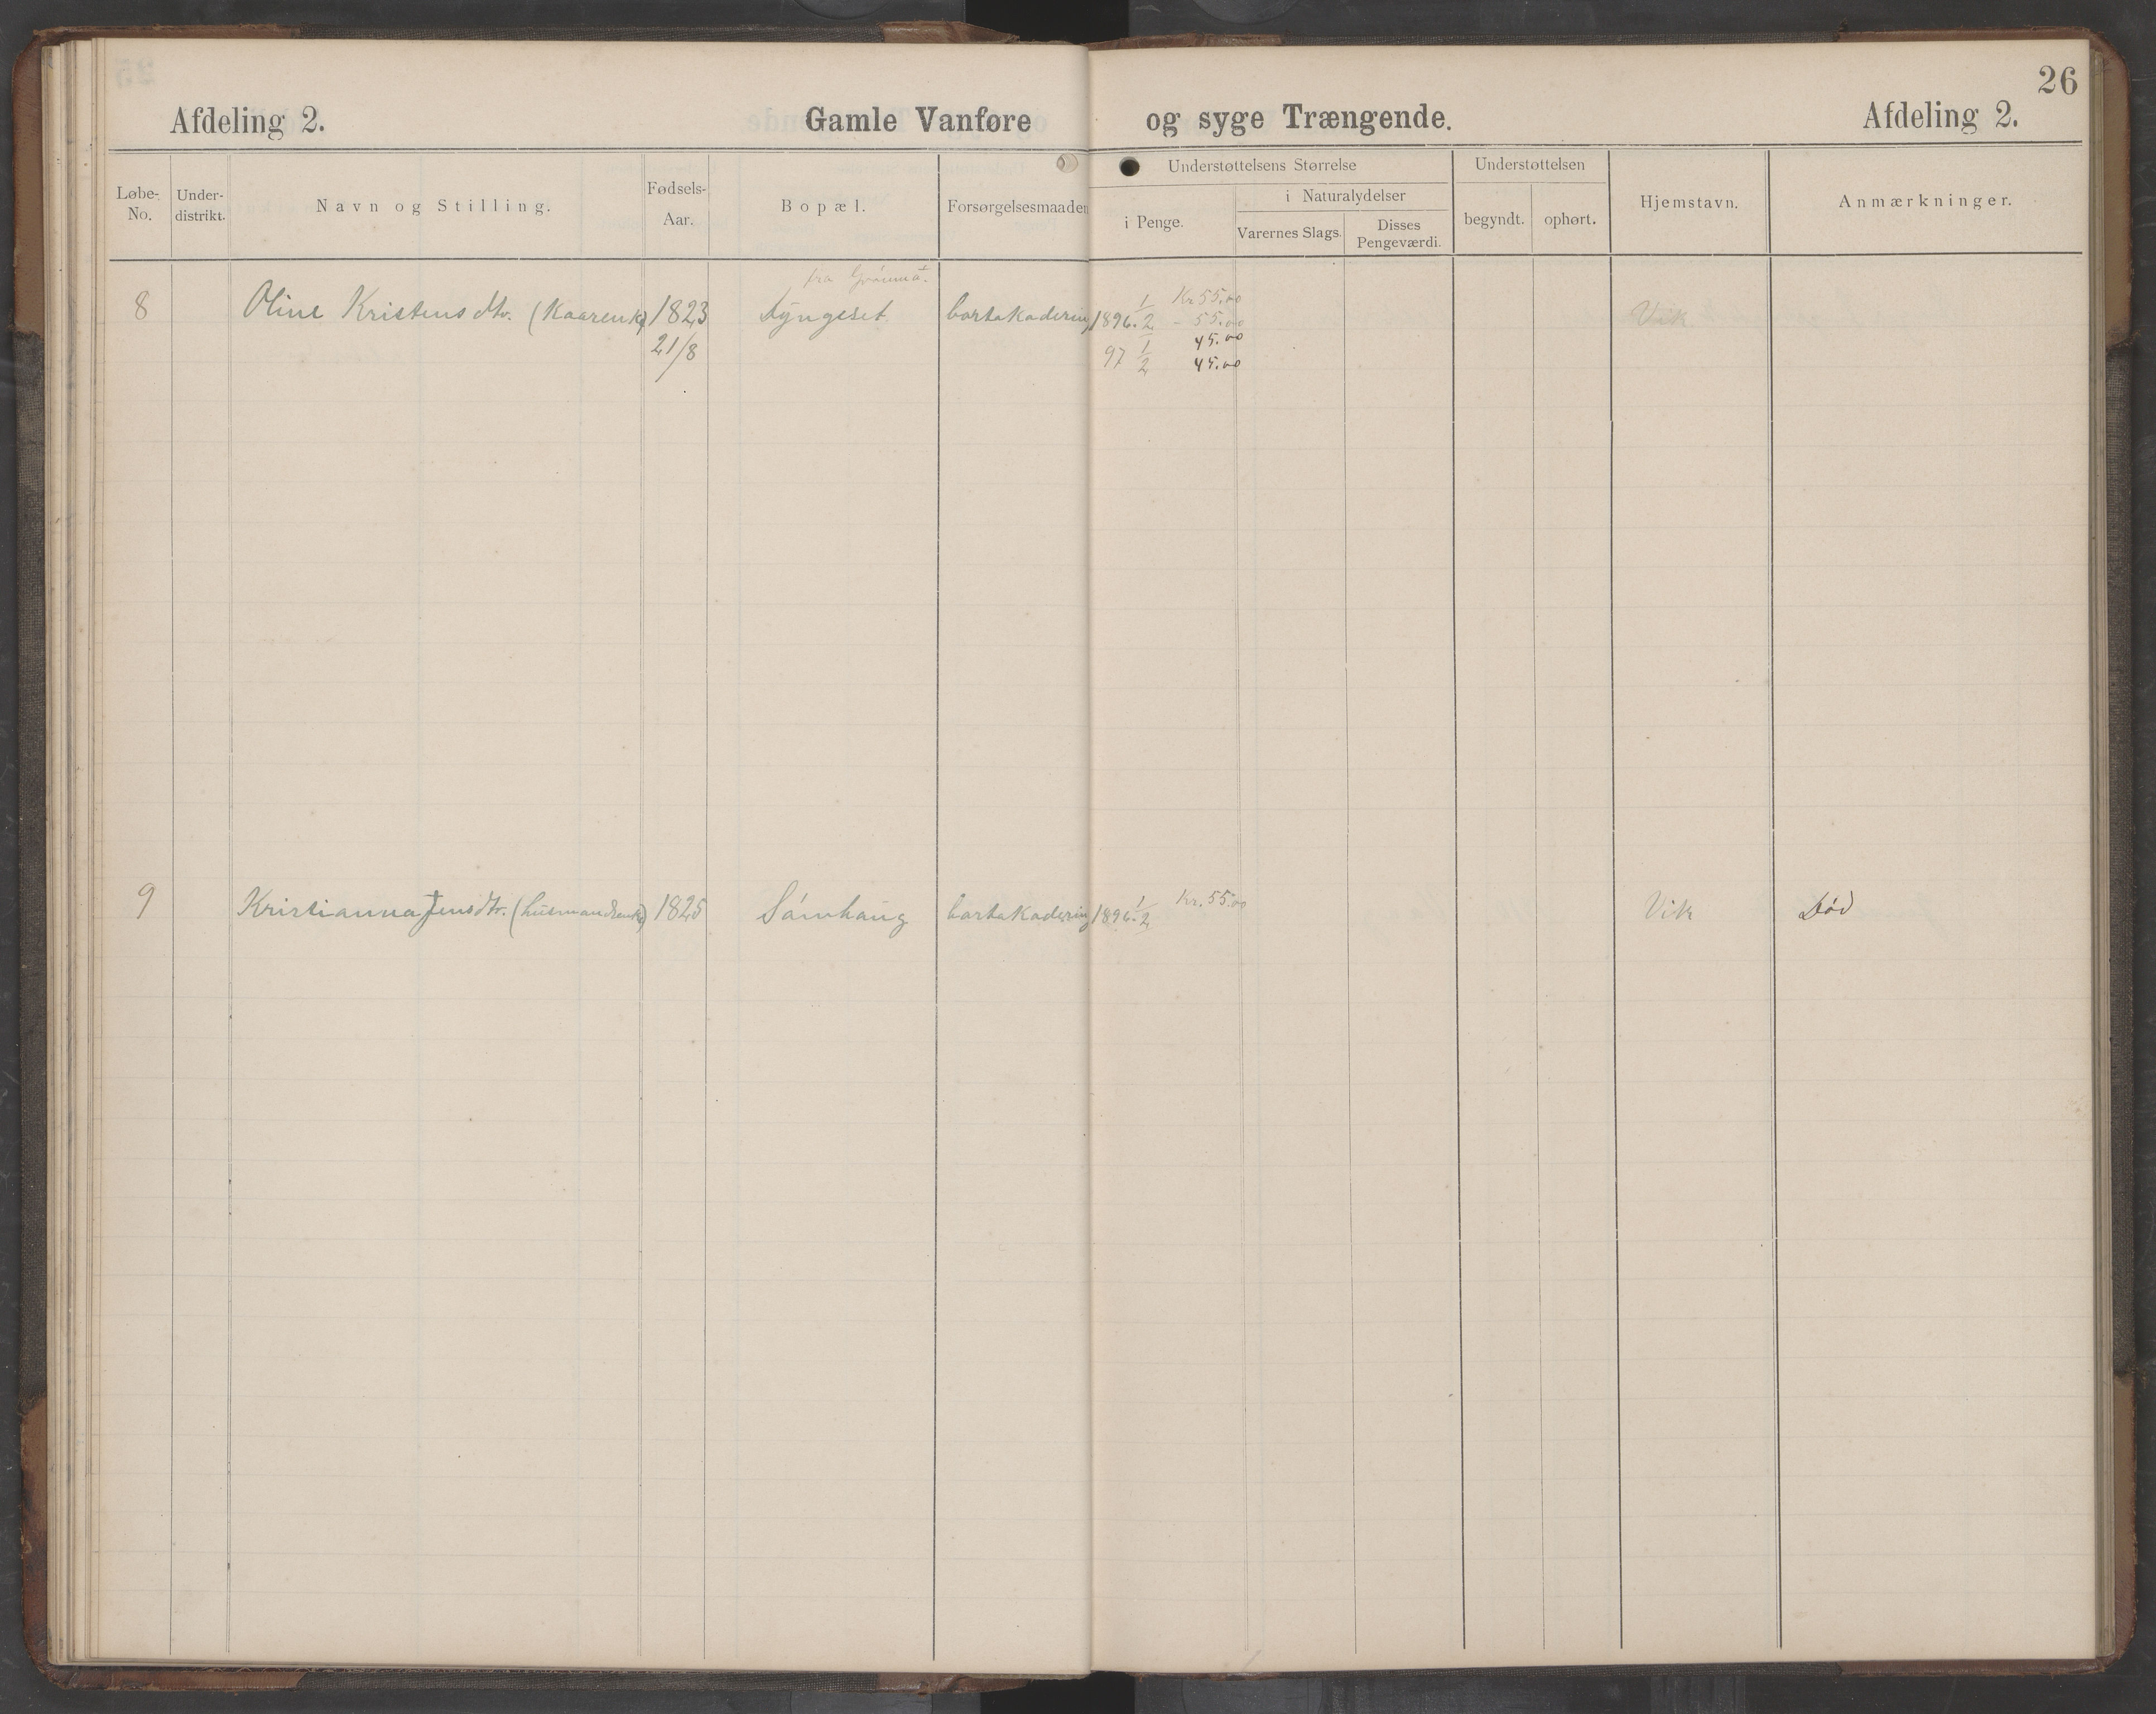 26
Afdeling 2. Gamle Vanføre og syge Trængende. Afdeling 2.
Løbe-No. Under-distrikt. Navn og Stilling. Fødsels-Aar. Bopæl. Forsørgelsesmaaden Understøttelsens Størrelse i Penge. i Naturalydelser Varernes Slags. Disses Pengeværdi. Understøttelsen begyndt. ophørt. Hjemstavn. Anmærkninger.
fra
8 Oline Kristensdtr. 1823 Syngeset bortakadering 1896. 1/2 Kr 55.00 Vik
- 55.00
21/8 97 1/2 45.00
45.00
9 Kristianna Jensdtr. (husmandsenke) 1825 Sámhaug bortakadering 1896. 1/2 Kr. 55.00 Vik Død